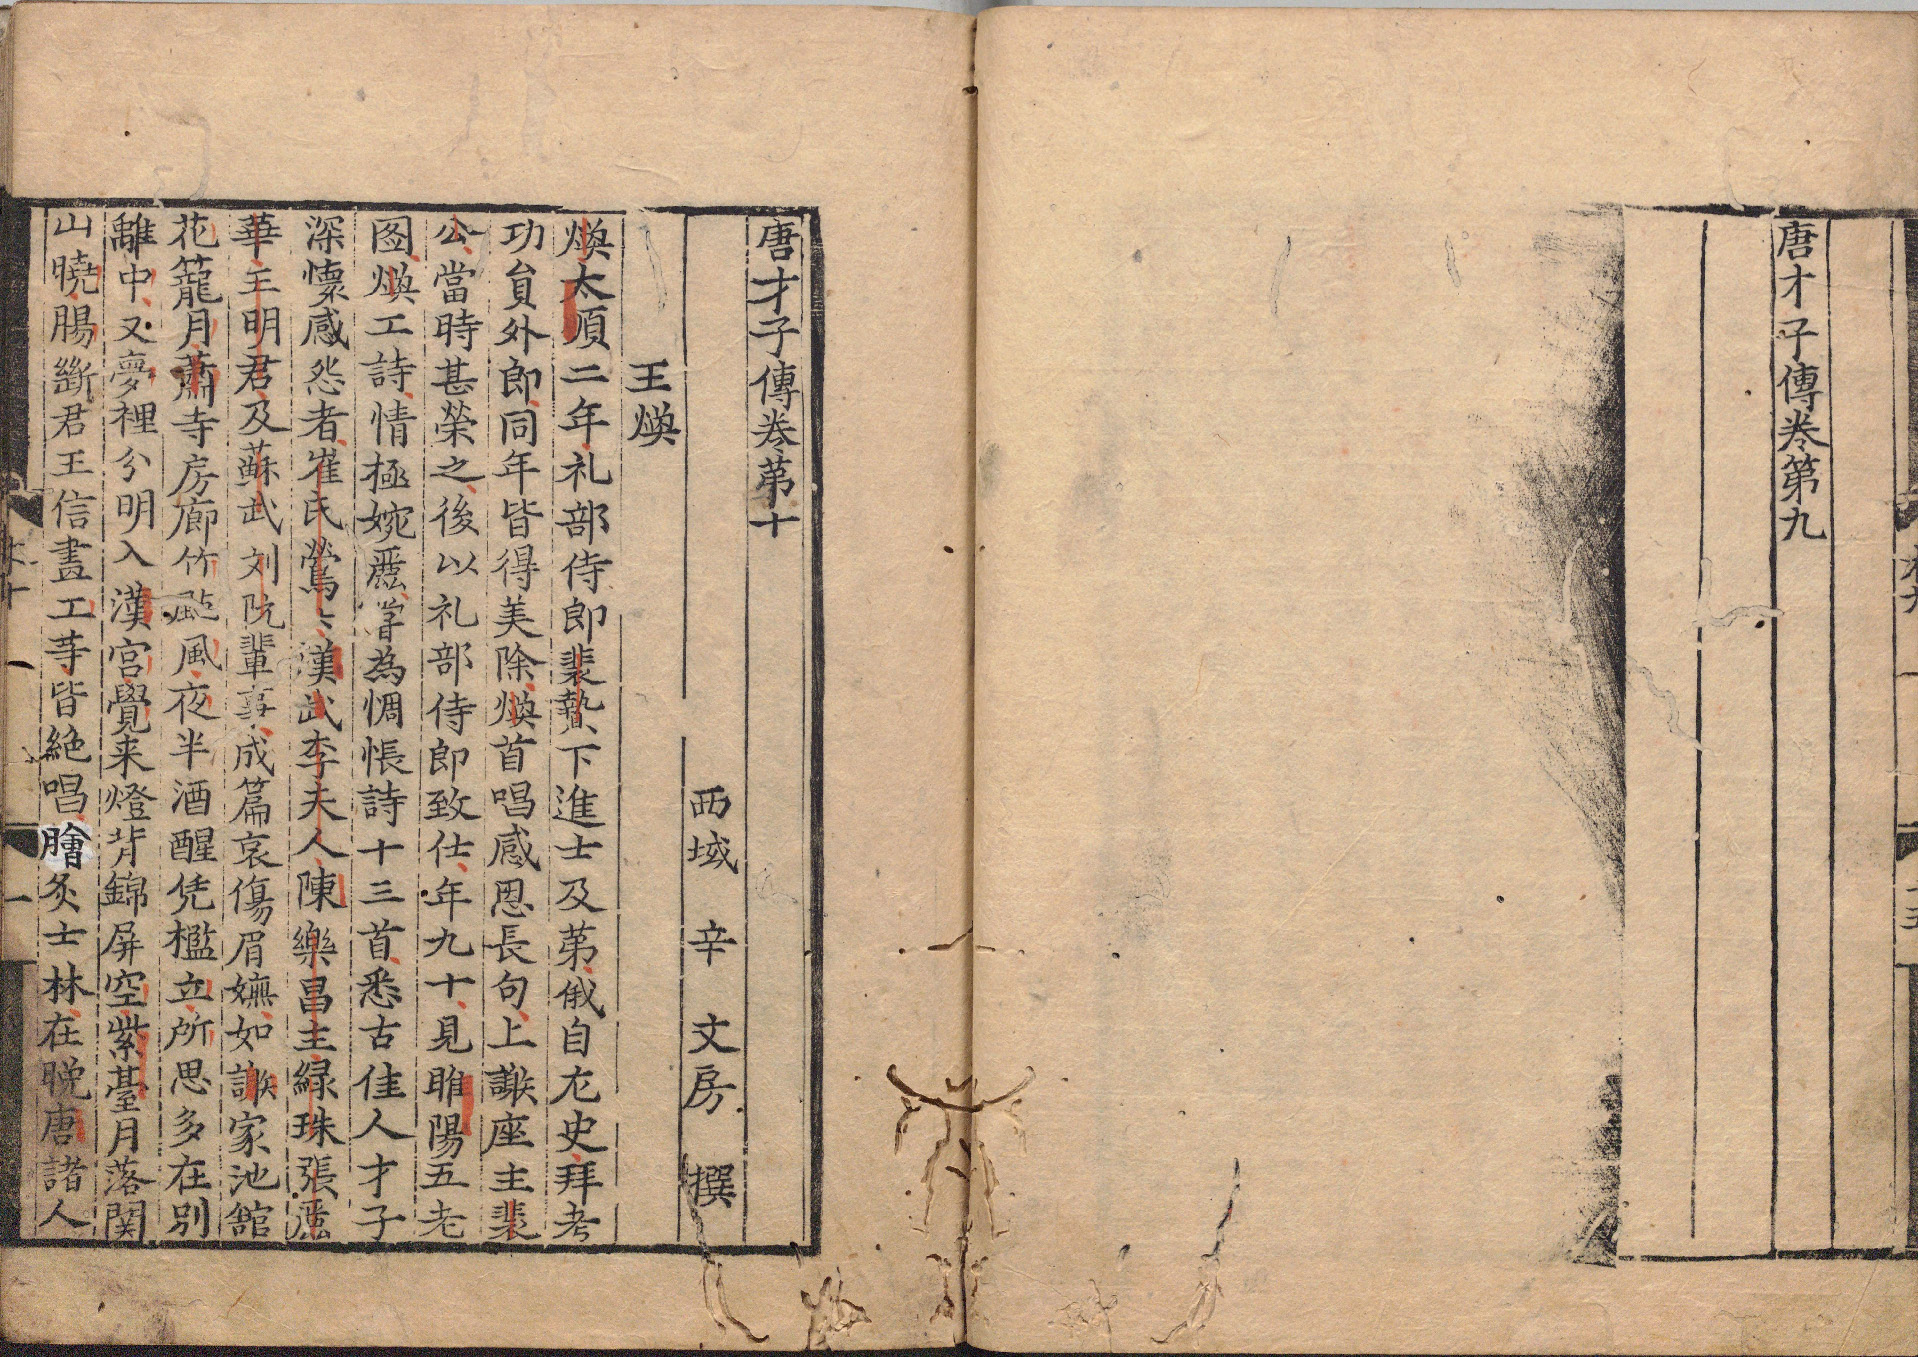 唐才子傳卷第九
唐才子傳卷第十
西域 辛 文房 撰
王煥
煥太順二年礼部侍郎裴贄下進士及第俄自左史拜考
功員外郎同年皆得美除煥首唱感恩長句上謝座主裴
公當時甚榮之後以礼部侍郎致仕年九十見睢陽五老
图煥工詩情極婉麗嘗為惆悵詩十三首悉古佳人才子
深懷感怨者崔氏鶯々漢武李夫人陳樂昌主緑珠張麗
華王明君及蘇武刘阮輩事成篇哀傷眉嫵如謝家池舘
花籠月蕭寺房廊竹颭風夜半酒醒凭檻立所思多在别
離中又夢裡分明入漢宮覺来燈背錦屏空紫薹月落関
山曉腸斷君王信畫工䓁皆絶唱膾炙士林在晚唐諸人